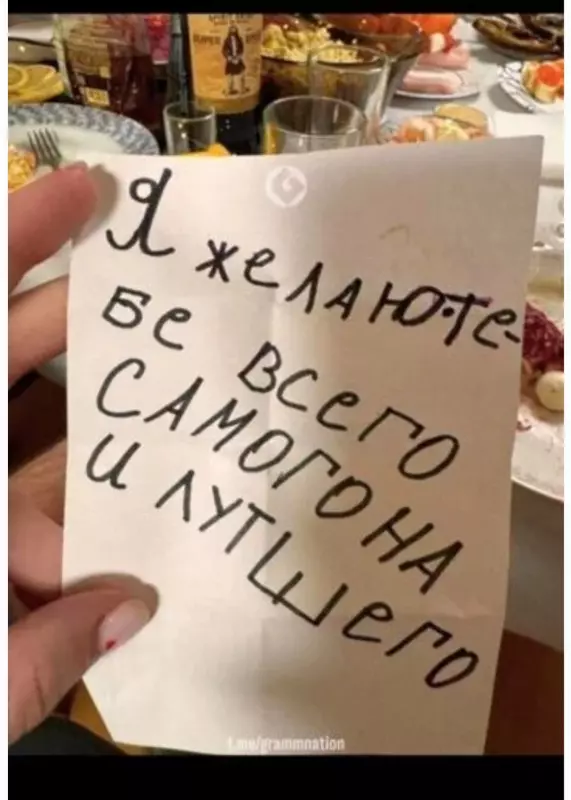 Я желаю те-
бе всего
САМОГОНА
и лутшего
t.me/grammnation